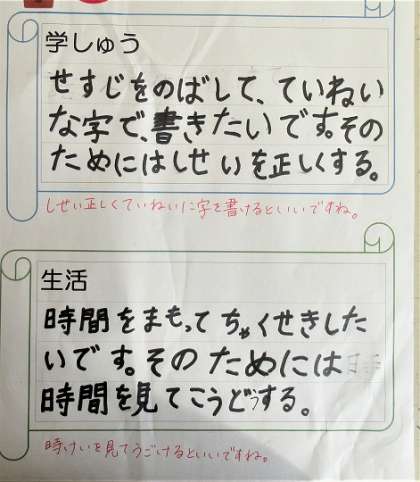 学しゅう
せすじをのばして、ていねい
な字で、書きたいです。その
ためにはしせいを正しくする。
しせい正しくていねいに字を書けるといいですね。
生活
時間をまもってちゃくせきした
いです。そのためには
時間を見てこうどうする。
時けいを見てうごけるといいですね。